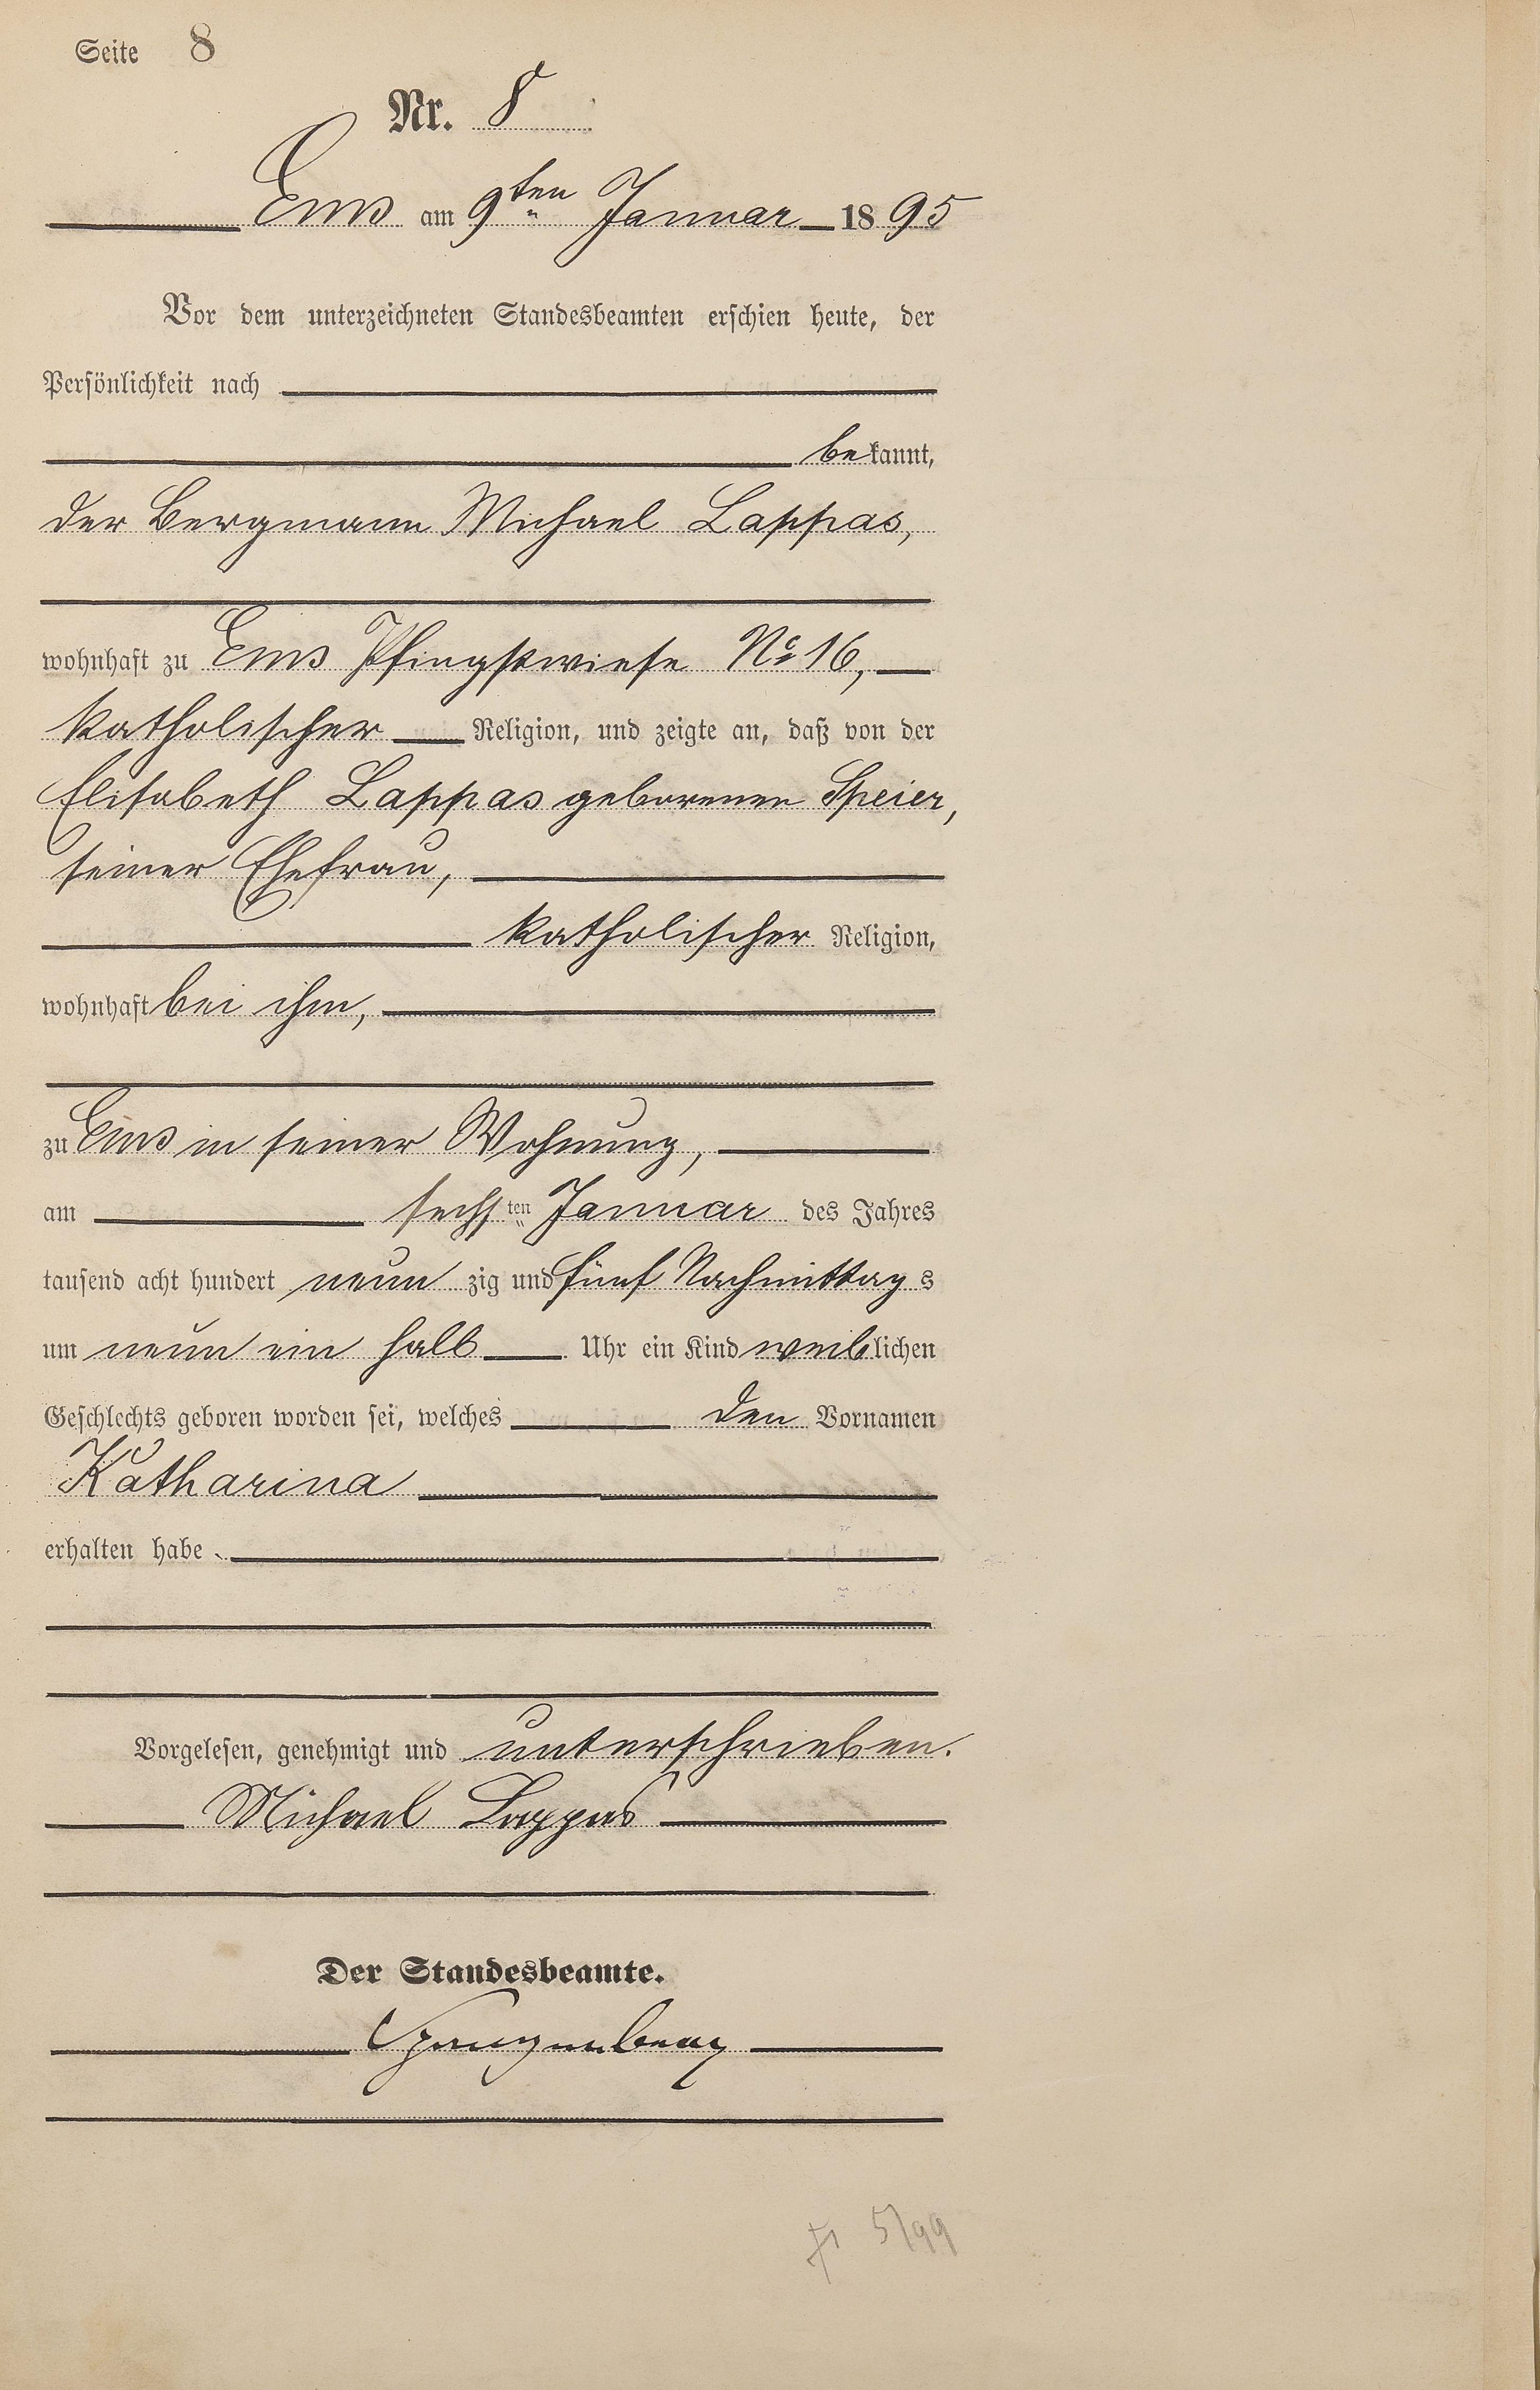 Seite 8
Nr. 8
Ems am 9ten Januar 1895
Vor dem unterzeichneten Standesbeamten erschien heute, der
Persönlichkeit nach
bekannt,
der Bergmann Michael Lappas,
wohnhaft zu Ems Pfingstwiese No 16,
katholischer Religion, und zeigte an, daß von der
Elisabeth Lappas geborenen Speier,
seiner Ehefrau,
katholischer Religion,
wohnhaft bei ihm,
zu Ems in seiner Wohnung,
am sechsten Januar des Jahres
tausend acht hundert neunzig und fünf Nachmittags
um neun ein halb Uhr ein Kind weiblichen
Geschlechts geboren worden sei, welches den Vornamen
Katharina
erhalten habe
Vorgelesen, genehmigt und unterschrieben.
Michael Lappas
Der Standesbeamte.
Spangenberg
5/99